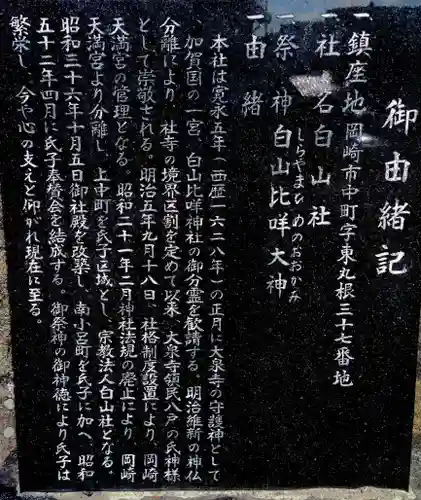 御由緒記
一鎮座地 岡崎市中町字東丸根三十七番地
一社名 白山社
一祭神 白山比咩大神
しらやまひめのおおかみ
一由緒
本社は寛永五年(西歴一六二八年)の正月に大泉寺の守護神として
、加賀国の一宮、白山比咩神社の御分霊を歓請する。明治維新の神仏
分離により、社寺の境界区割を定めて以来、大泉寺領民八戸の氏神様
として崇敬される。明治五年九月十八日、社格制度設置により、岡崎
天満宮の管理となる。昭和二十一年二月神社法規の廃止により、岡崎
天満宮より分離し、上中町を氏子区域とし、宗教法人白山社となる。
昭和三十六年十月五日御社殿を改築し、南小呂町を氏子に加へ、昭和
五十二年四月に氏子奉賛会を結成する。御祭神の御神徳により氏子は
繁栄し、今や心の支えと仰がれ現在に至る。